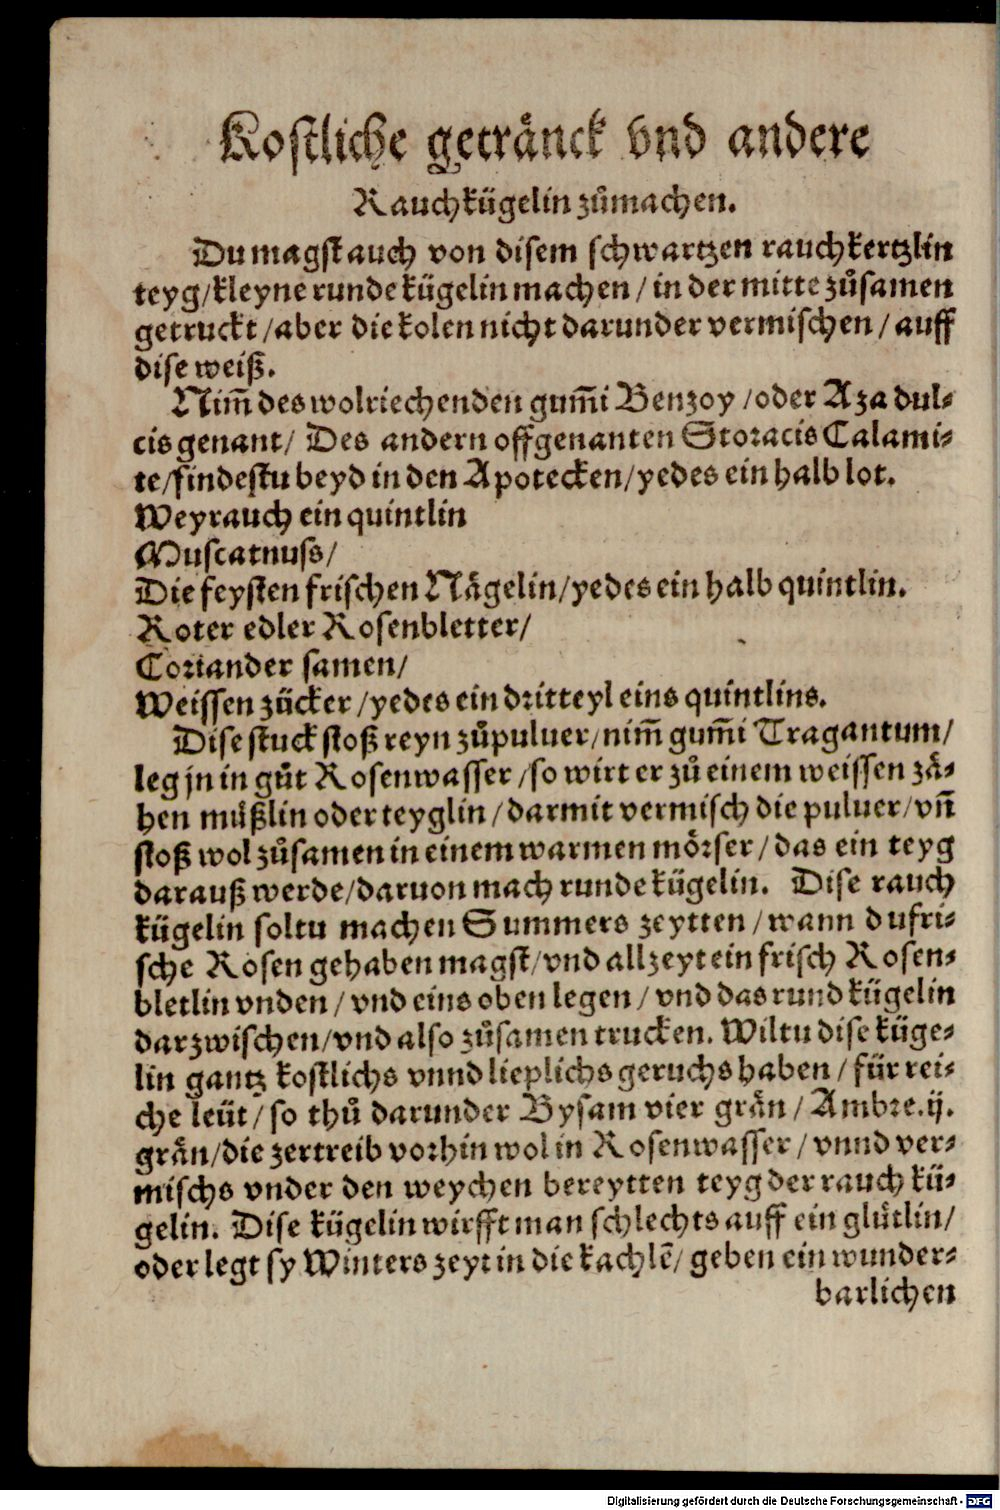 Kostliche getränck vnd andere
Rauchkügelin zůmachen.
Du magst auch von disem schwartzen rauchkertzlin
teyg/kleyne runde kügelin machen / in der mitte zůsamen
getruckt / aber die kolen nicht darunder vermischen / auff
dise weiß.
Nim̃ des wolriechenden gum̃i Benzoy / oder Aza dul-
cis genant/ Des andern offgenanten Storacis Calami-
te/findestu beyd in den Apotecken/yedes ein halb lot.
Weyrauch ein quintlin
Muscatnuss/
Die feysten frischen Nägelin/yedes ein halb quintlin.
Roter edler Rosenbletter/
Coriander samen/
Weissen zücker /yedes ein dritteyl eins quintlins.
Dise stuck stoß reyn zůpuluer/nim̃ gum̃i Tragantum/
leg jn in gůt Rosenwasser /so wirt er zů einem weissen zä-
hen můßlin oder teyglin / darmit vermisch die puluer/vñ
stoß wol zůsamen in einem warmen mörser / das ein teyg
darauß werde/daruon mach runde kügelin. Dise rauch
kügelin soltu machen Summers zeytten / wann du fri-
sche Rosen gehaben magst/vnd allzeyt ein frisch Rosen-
bletlin vnden / vnd eins oben legen / vnd das rund kügelin
darzwischen/vnd also zůsamen trucken. Wiltu dise küge-
lin gantz kostlichs vnnd lieplichs geruchs haben / für rei-
che leüt / so thů darunder Bysam vier grän / Ambre.ij.
grän/die zertreib vorhin wol in Rosenwasser / vnnd ver-
mischs vnder den weychen bereytten teyg der rauch kü-
gelin. Dise kügelin wirfft man schlechts auff ein glůtlin/
oder legt sy Winters zeyt in die kachlẽ/ geben ein wunder-
barlichen
Digitalisierung gefördert durch die Deutsche Forschungsgemeinschaft - DFG